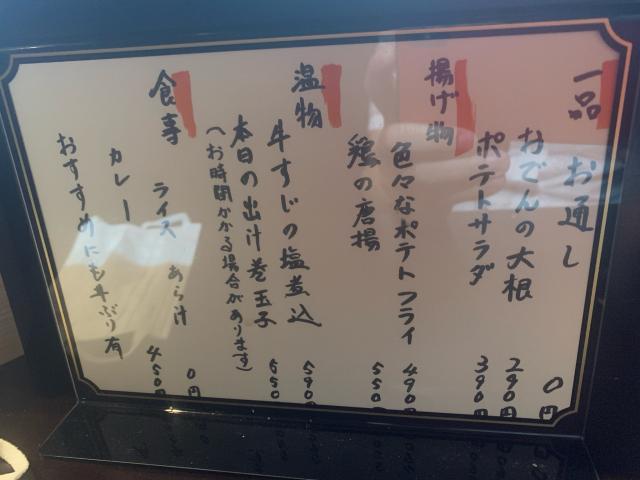 一品
お通し 0円
おでんの大根 290円
ポテトサラダ 390円
揚げ物
色々なポテトフライ 490円
鶏の唐揚 550円
温物
牛すじの塩煮込 590円
本日の出汁巻玉子 650
(お時間がかる場合があります)
食事
ライス あら汁 0円
カレー 450円
おすすめにも牛ぶり有